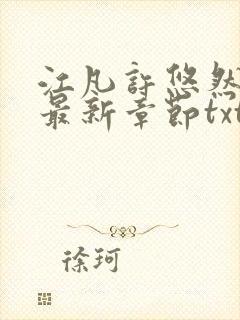 江凡許悠然
最新章節txt
徐珂